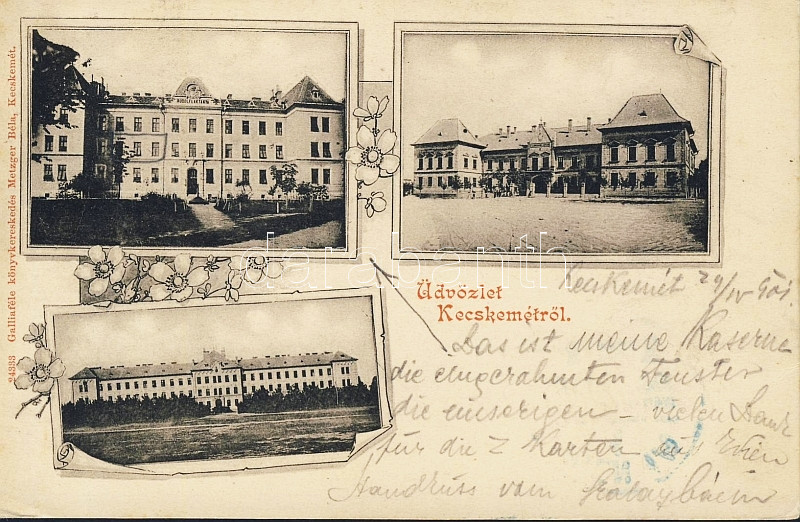 24333 Galliaféle könyvkereskedés Metzger Béla, Kecskemét.
RUDOLF LAKTANYA
darabanth
Üdvözlet
Kecskemétről.
Kecskemét 29/IV 901.
Das ist meine Kaserne
die eingerahmten Fenster
die unserigen – vielen Dank
für die 2 Karten
Handkuss vom